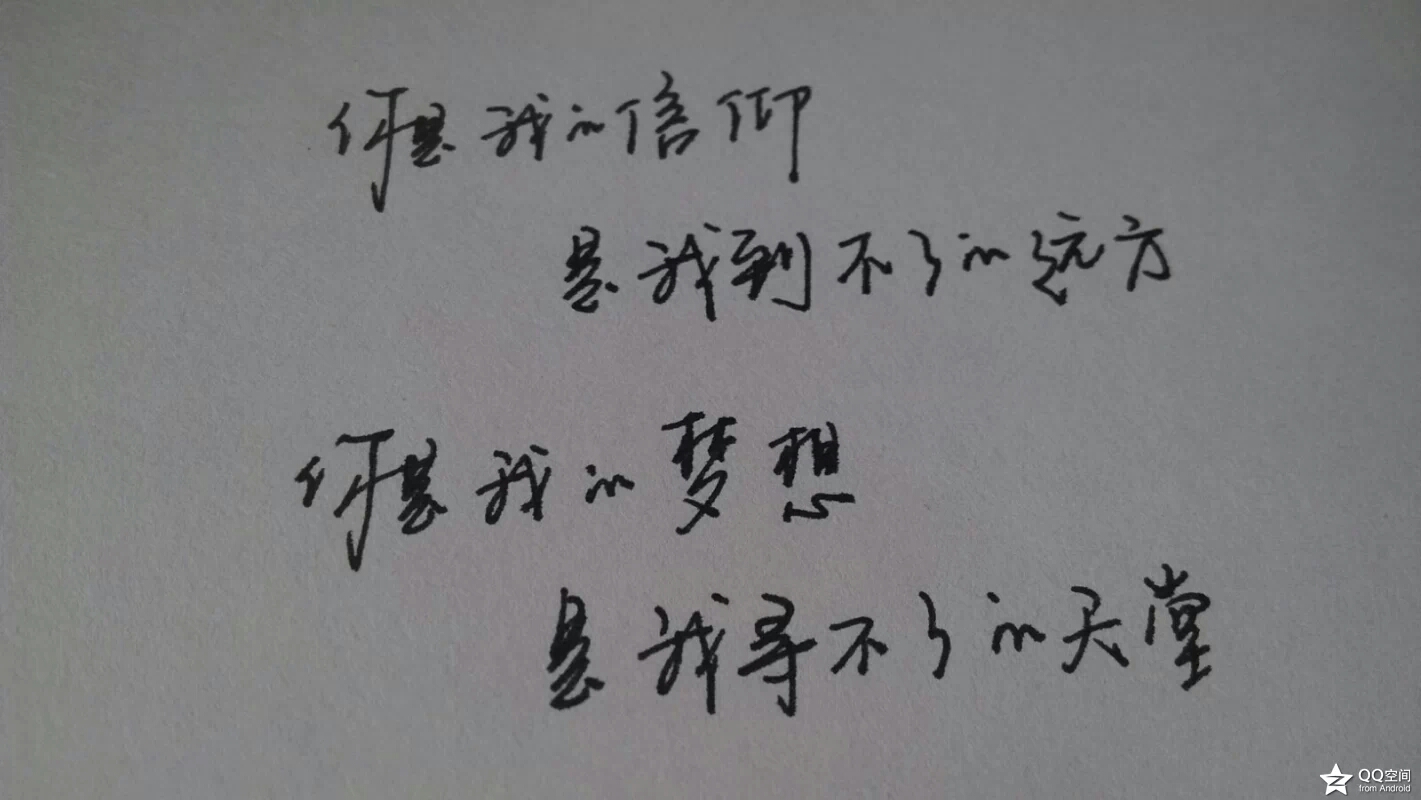 你是我的信仰
是我到不了的远方
你是我的梦想
是我寻不了的天堂
QQ空间
from Android